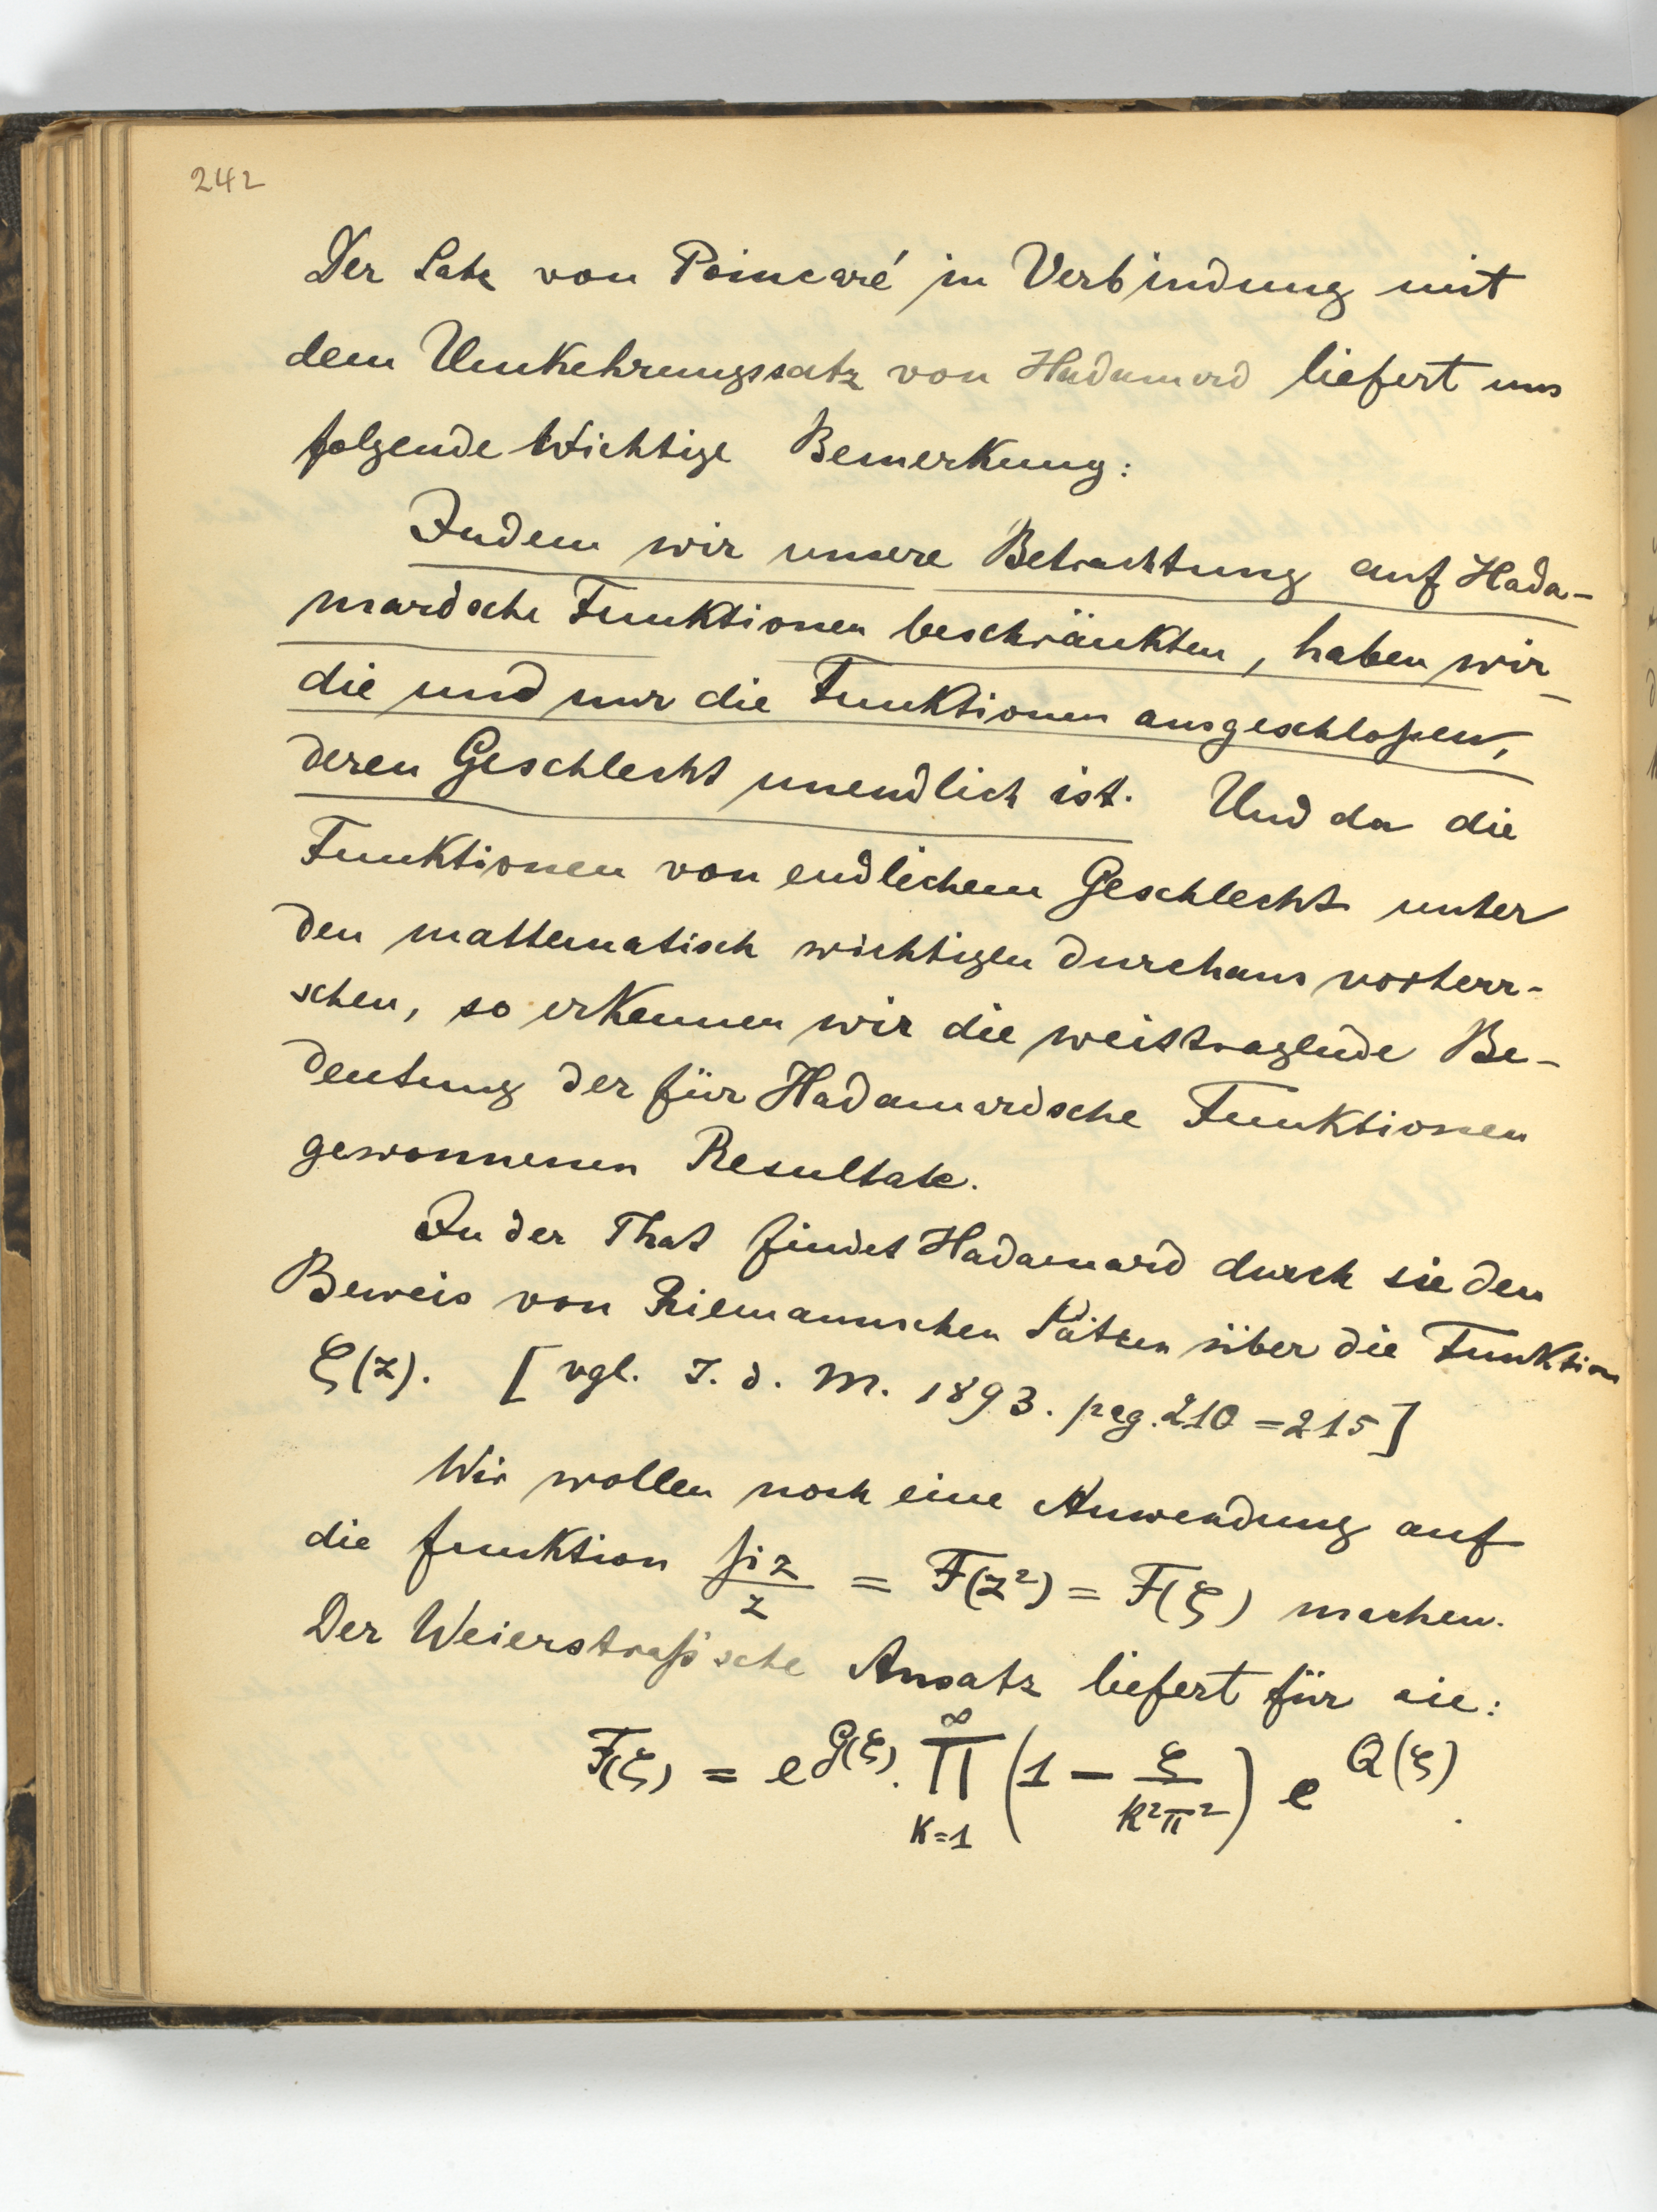 242
Der Satz von Poincaré in Verbindung mit
dem Umkehrungssatz von Hadamard liefert uns
folgende wichtige Bemerkung:
Indem wir unsere Betrachtung auf Hada-
mardsche Funktionen beschränkten, haben wir
die und nur die Funktionen ausgeschloßen,
deren Geschlecht unendlich ist. Und da die
Funktionen von endlichem Geschlecht unter
den mathematisch wichtigen durchaus vorherr-
schen, so erkennen wir die weittragende Be-
deutung der für Hadamardsche Funktionen
gewonnenen Resultate.
In der That findet Hadamard durch sie den
Beweis von Riemannschen Sätzen über die Funktion
ζ(z). [vgl. J. d. M. 1893. pag. 210 = 215]
Wir wollen noch eine Anwendung auf
die funktion si z / z = F(z²) = F(ξ) machen.
Der Weierstraß'sche Ansatz liefert für sie:
F(ξ) = e^{G(ξ)} . ∏_{k=1}^{∞} (1 − ξ/(k²π²)) e^{Q(ξ)}.